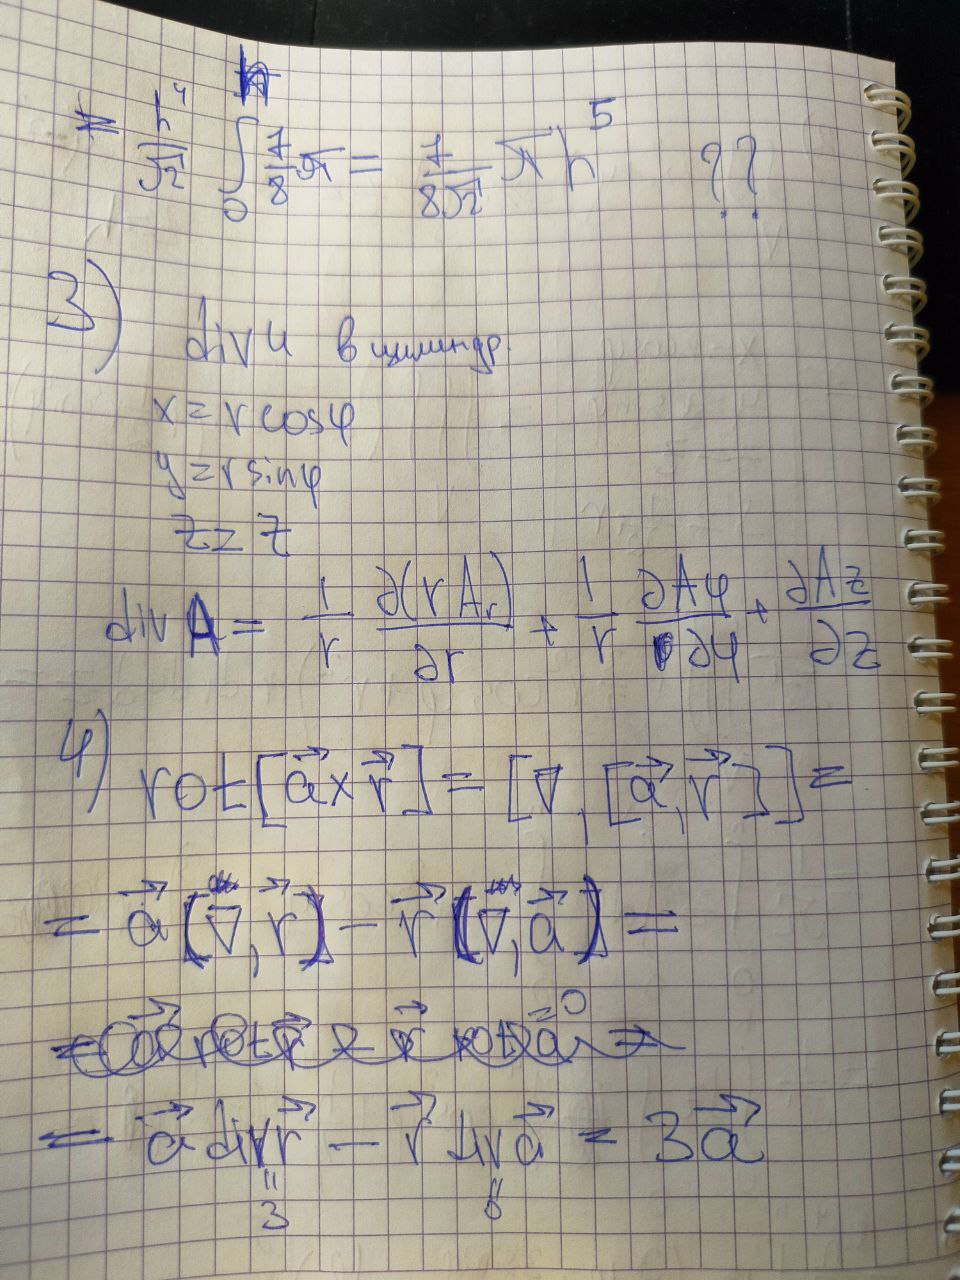 = h⁴/√2 ∫₀ 7/8 π = 7/8√2 π h⁵ ??
3)
div u в цилиндр.
x = r cosφ
y = r sinφ
z = z
div A = 1/r ∂(r Aᵣ)/∂r + 1/r ∂Aφ/∂φ + ∂Az/∂z
4) rot[a⃗ x r⃗] = [∇, [a⃗, r⃗]] =
= a⃗ (∇, r⃗) − r⃗ (∇, a⃗) =
= a⃗ div r⃗ − r⃗ div a⃗ = 3a⃗
" "
3 0